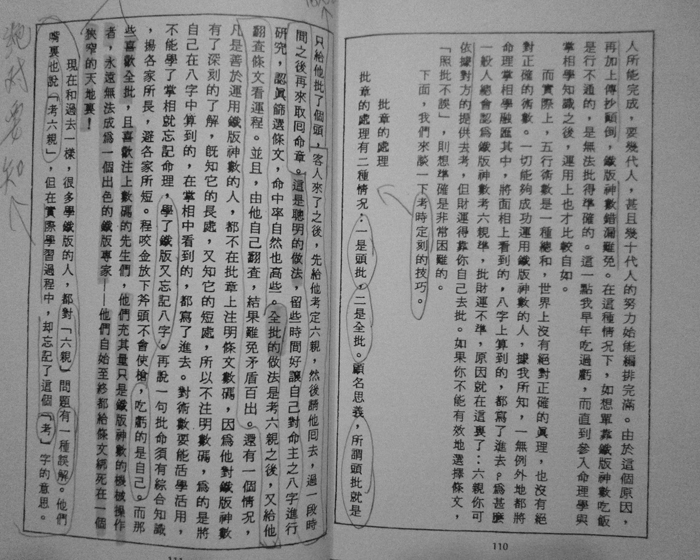 人所能完成,要幾代人,甚且幾十代人的努力始能編排完滿。由於這個原因,
再加上傳抄顛倒,鐵版神數錯漏難免。在這種情況下,如想單靠鐵版神數吃飯
是行不通的,是無法批得準確的。這一點我早年吃過虧,而直到參入命理學與
掌相學知識之後,運用上也才比較自如。
而實際上,五行術數是一種總和,世界上沒有絕對正確的真理,也沒有絕
對正確的術數。一切能夠成功運用鐵版神數的人,據我所知,一無例外地都將
命理掌相學融匯其中,將面相上看到的,八字上算到的,都寫了進去。為甚麼
一般人總會認為鐵版神數考六親準,批財運不準,原因就在這裏了:六親你可
依據對方的提供去考,但財運得靠你自己去批。如果你不能有效地選擇條文,
「照批不誤」,則想準確是非常困難的。
下面,我們來談一下考時定刻的技巧。
批章的處理
批章的處理有二種情況:一是頭批,二是全批。顧名思義,所謂頭批就是
110
只給他批了個頭,客人來了之後,先給他考定六親,然後請他回去,過一段時
間之後再來取回命章。這是聰明的做法,留些時間好讓自己對命主之八字進行
研究,認真篩選條文,命中率自然也高些。全批的做法是考六親之後,又給他
翻查條文看運程。並且,由他自己翻查,結果難免矛盾百出。還有一個情況,
凡是善於運用鐵版神數的人,都不在批章上注明條文數碼,因為他對鐵版神數
有了深刻的了解,既知它的長處,又知它的短處,所以不注明數碼,為的是將
自己在八字中算到的,在掌相中看到的,都寫了進去。對術數要能活學活用,
不能學了掌相就忘記命理,學了鐵版又忘記八字。再說一句批命須有綜合知識
,揚各家所長,避各家所短。程咬金放下斧頭不會使槍,吃虧的是自己。而那
些喜歡全批,且喜歡注上數碼的先生們,他們充其量只是鐵版神數的機械操作
者,永遠無法成為一個出色的鐵版專家——他們自始至終都給條文綁死在一個
狹窄的天地裏!
現在和過去一樣,很多學鐵版的人,都對「六親」問題有一種誤解。他們
嘴裏也說「考六親」,但在實際學習過程中,却忘記了這個「考」字的意思。